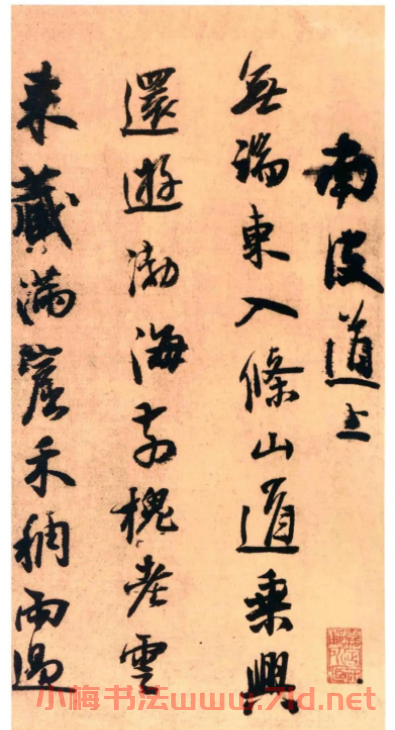 南皮道上
無端東入條山道乘興
還遊渤海方槐老雲
來藏滿禾稠雨過
小梅书法www.71d.net